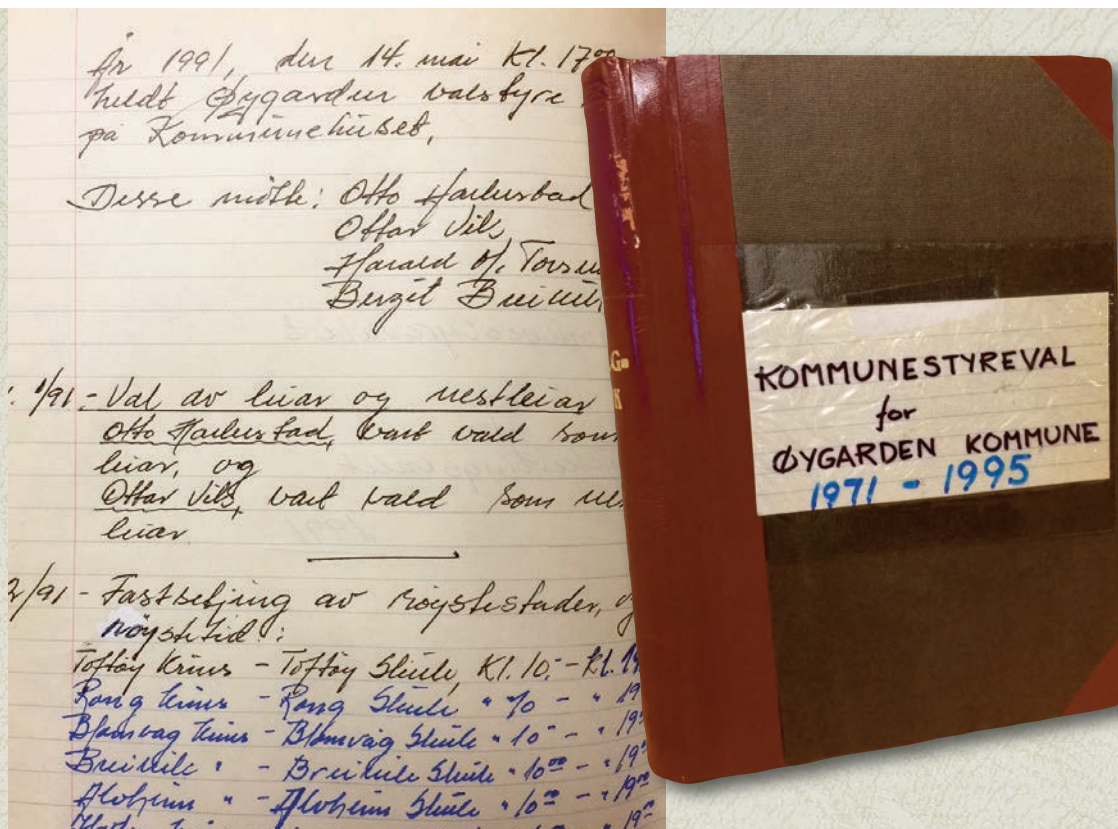 År 1991, den 14. mai Kl. 17⁰⁰
heldt Øygarden valstyre
på Kommunehuset,
Desse møtte: Otto Harkestad
Ottar Vik,
Harald O. Torsv
Bergit Breivik,
1/91 - Val av leiar og nestleiar
Otto Harkestad, vart vald som
leiar, og
Ottar Vik, vart vald som nes
leiar
2/91 - Fastsetjing av røystestader, o
røystetid:
Toftøy krins - Toftøy Skule, Kl. 10,- - Kl. 19
Rong krins - Rong Skule " 10 - " 19
Blomvåg krins - Blomvåg Skule " 10 - " 19
Breivik " - Breivik Skule " 10⁰⁰ - " 19
Alvheim " - Alvheim Skule " 10⁰⁰ - " 19⁰⁰
G
K
KOMMUNESTYREVAL
for
ØYGARDEN KOMMUNE
1971 - 1995